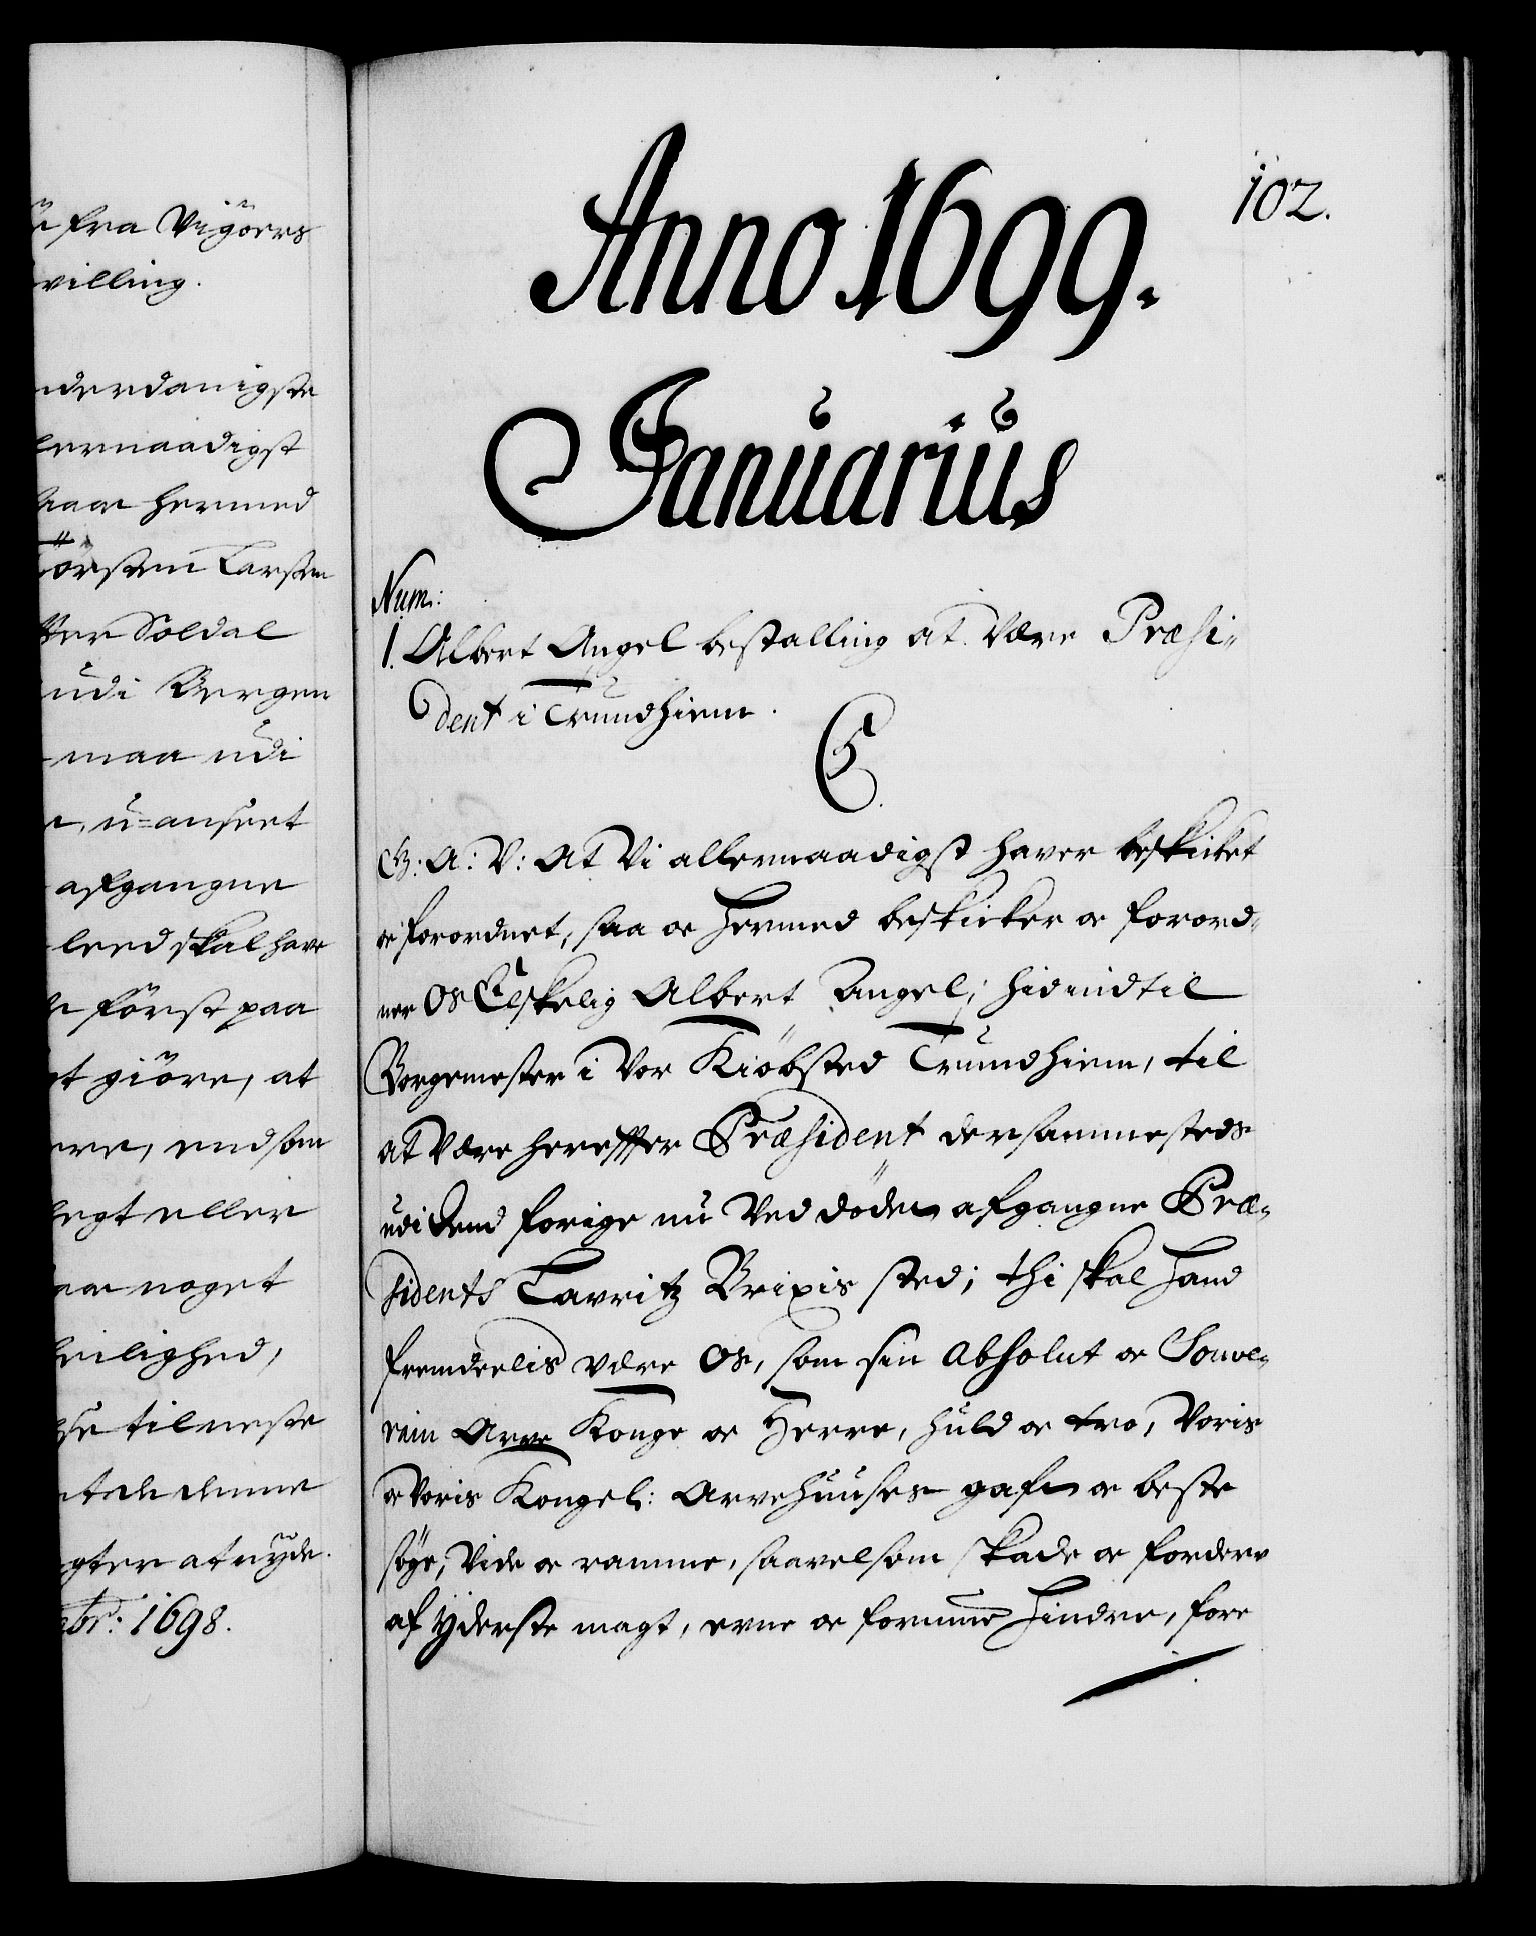 fra Vigöers
villing.
nderdanigste
lernaadigst
hermed
Larsen
Soldal
udi Bergen
maa udi
u-anseet
afgangne
leed skal have
först paa
giöre, at
endsom
legt eller
noget
leilighed,
til neste
denne
at nyde.
1698.
102.
Anno 1699.
Januarius
Num:
1. Albert Angel bestalling at være Præsi-
dent i Trundhiem.
C5
G: A: V: At Vi allernaadigst haver beskicket
oc forordnet, saa oc hermed beskicker oc forord-
ner Os Elskelig Albert Angel, hidindtil
Borgemester i Vor Kiöbsted Trundhiem, til
at være herefter Præsident dersammesteds
udi dend forige nu ved döden afgangne Præ-
sidents Lavritz Brixis sted; thi skal hand
fremdeelis være Os, som sin Absolut oc Souve-
rain Arve Konge oc Herre, huld oc tro, Voris
oc Voris Kongel: Arvehuuses gafn oc beste
söge, vide oc ramme, saavelsom skade oc forderv
af yderste magt, evne oc formue hindre, fore